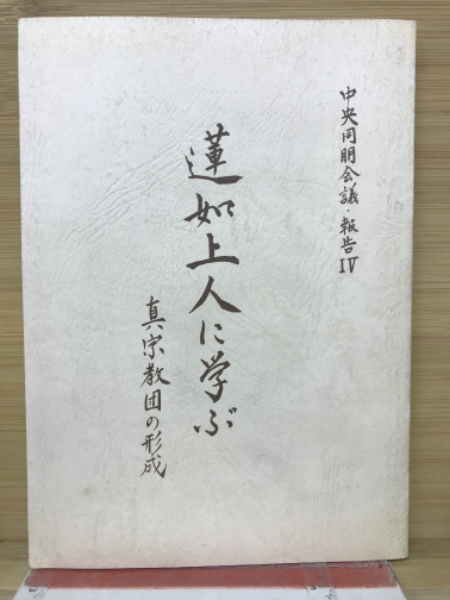 中央同朋会議・報告IV
蓮如上人に学ぶ
真宗教団の形成